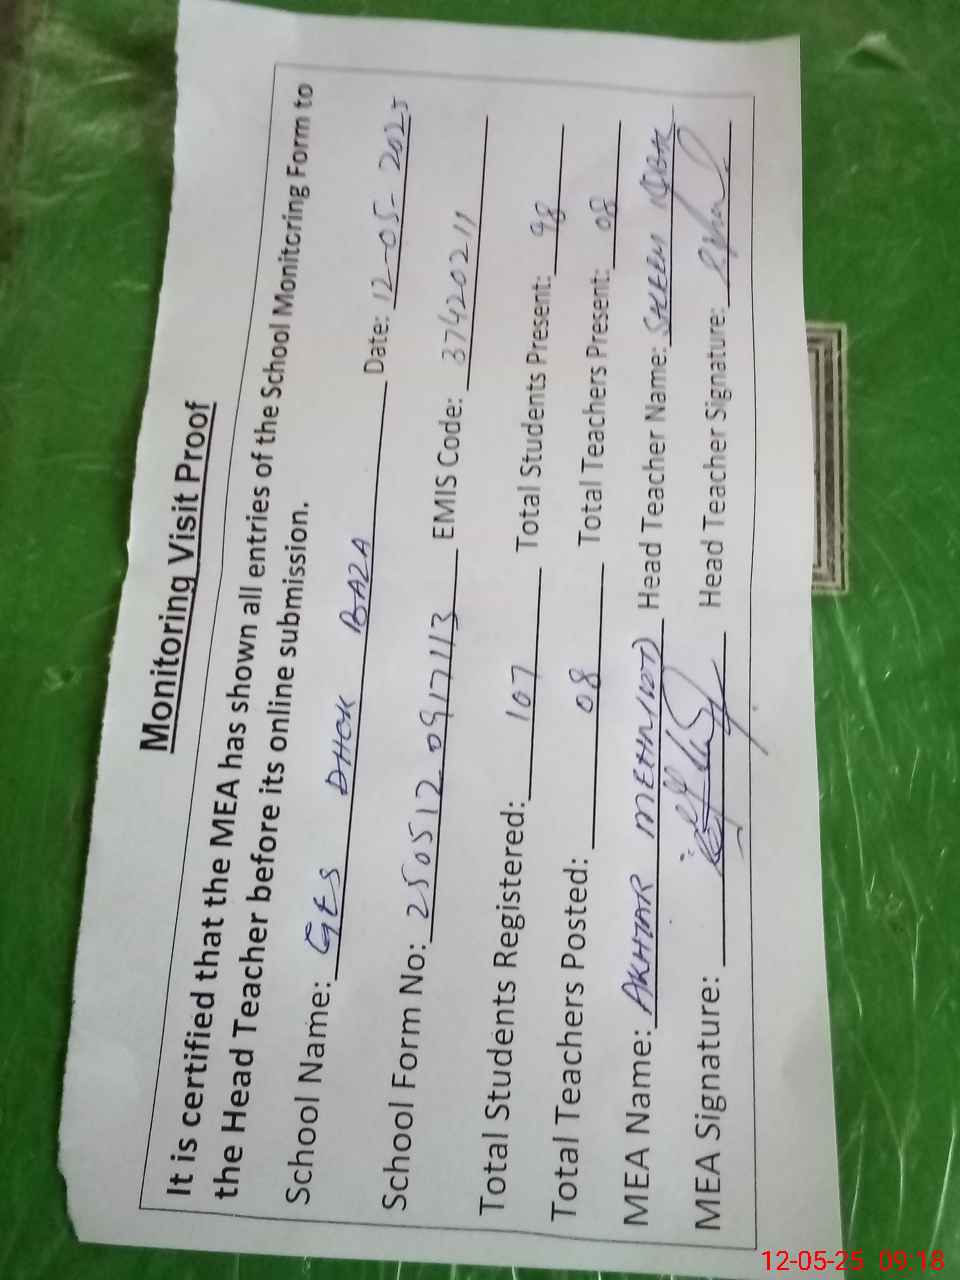 Monitoring Visit Proof
It is certified that the MEA has shown all entries of the School Monitoring Form to
the Head Teacher before its online submission.
School Name: GES DHOK BAZA Date: 12-05-2025
School Form No: 250512 0917113 EMIS Code: 37420211
Total Students Registered: 107 Total Students Present: 98
Total Teachers Posted: 08 Total Teachers Present: 08
MEA Name: AKHTAR Head Teacher Name: IQBAL
MEA Signature: Head Teacher Signature:
12-05-25 09:18